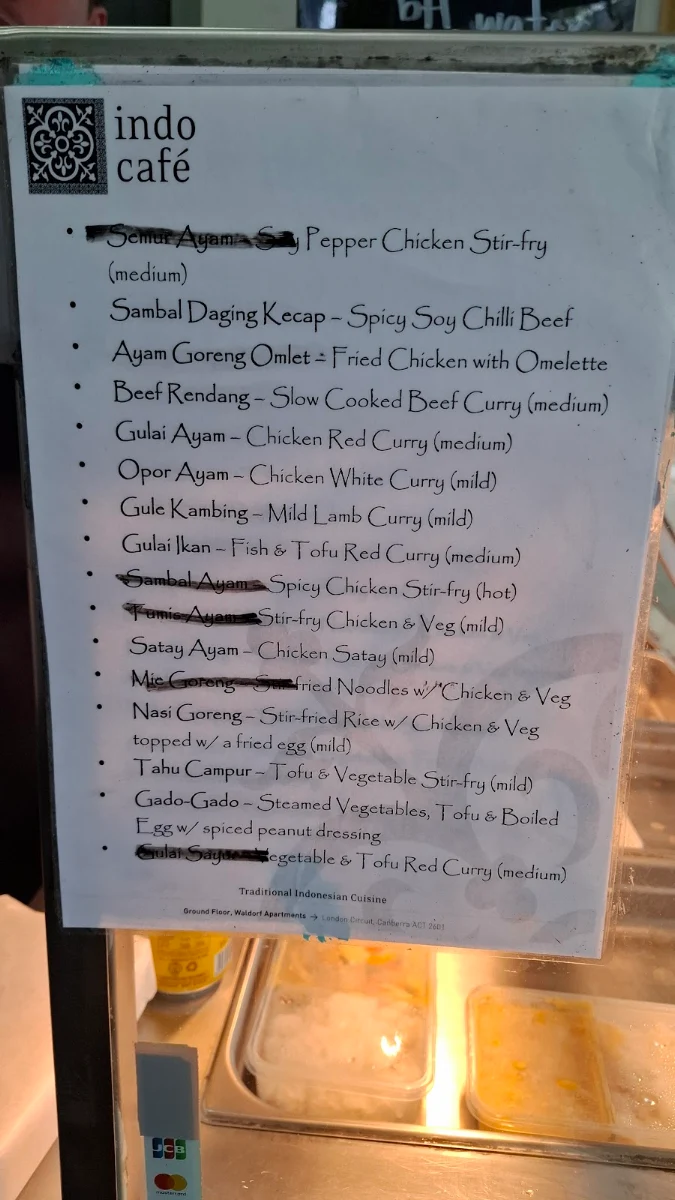 indo
café
• Semur Ayam - Soy Pepper Chicken Stir-fry
(medium)
• Sambal Daging Kecap – Spicy Soy Chilli Beef
• Ayam Goreng Omlet – Fried Chicken with Omelette
• Beef Rendang – Slow Cooked Beef Curry (medium)
• Gulai Ayam – Chicken Red Curry (medium)
• Opor Ayam – Chicken White Curry (mild)
• Gule Kambing – Mild Lamb Curry (mild)
• Gulai Ikan – Fish & Tofu Red Curry (medium)
• Sambal Ayam – Spicy Chicken Stir-fry (hot)
• Tumis Ayam – Stir-fry Chicken & Veg (mild)
• Satay Ayam – Chicken Satay (mild)
• Mie Goreng – fried Noodles w/ Chicken & Veg
• Nasi Goreng – Stir-fried Rice w/ Chicken & Veg
topped w/ a fried egg (mild)
• Tahu Campur – Tofu & Vegetable Stir-fry (mild)
• Gado-Gado – Steamed Vegetables, Tofu & Boiled
Egg w/ spiced peanut dressing
• Gulai egetable & Tofu Red Curry (medium)
Traditional Indonesian Cuisine
Ground Floor, Waldorf Apartments → London Circuit, Canberra ACT 2601
JCB
mastercard